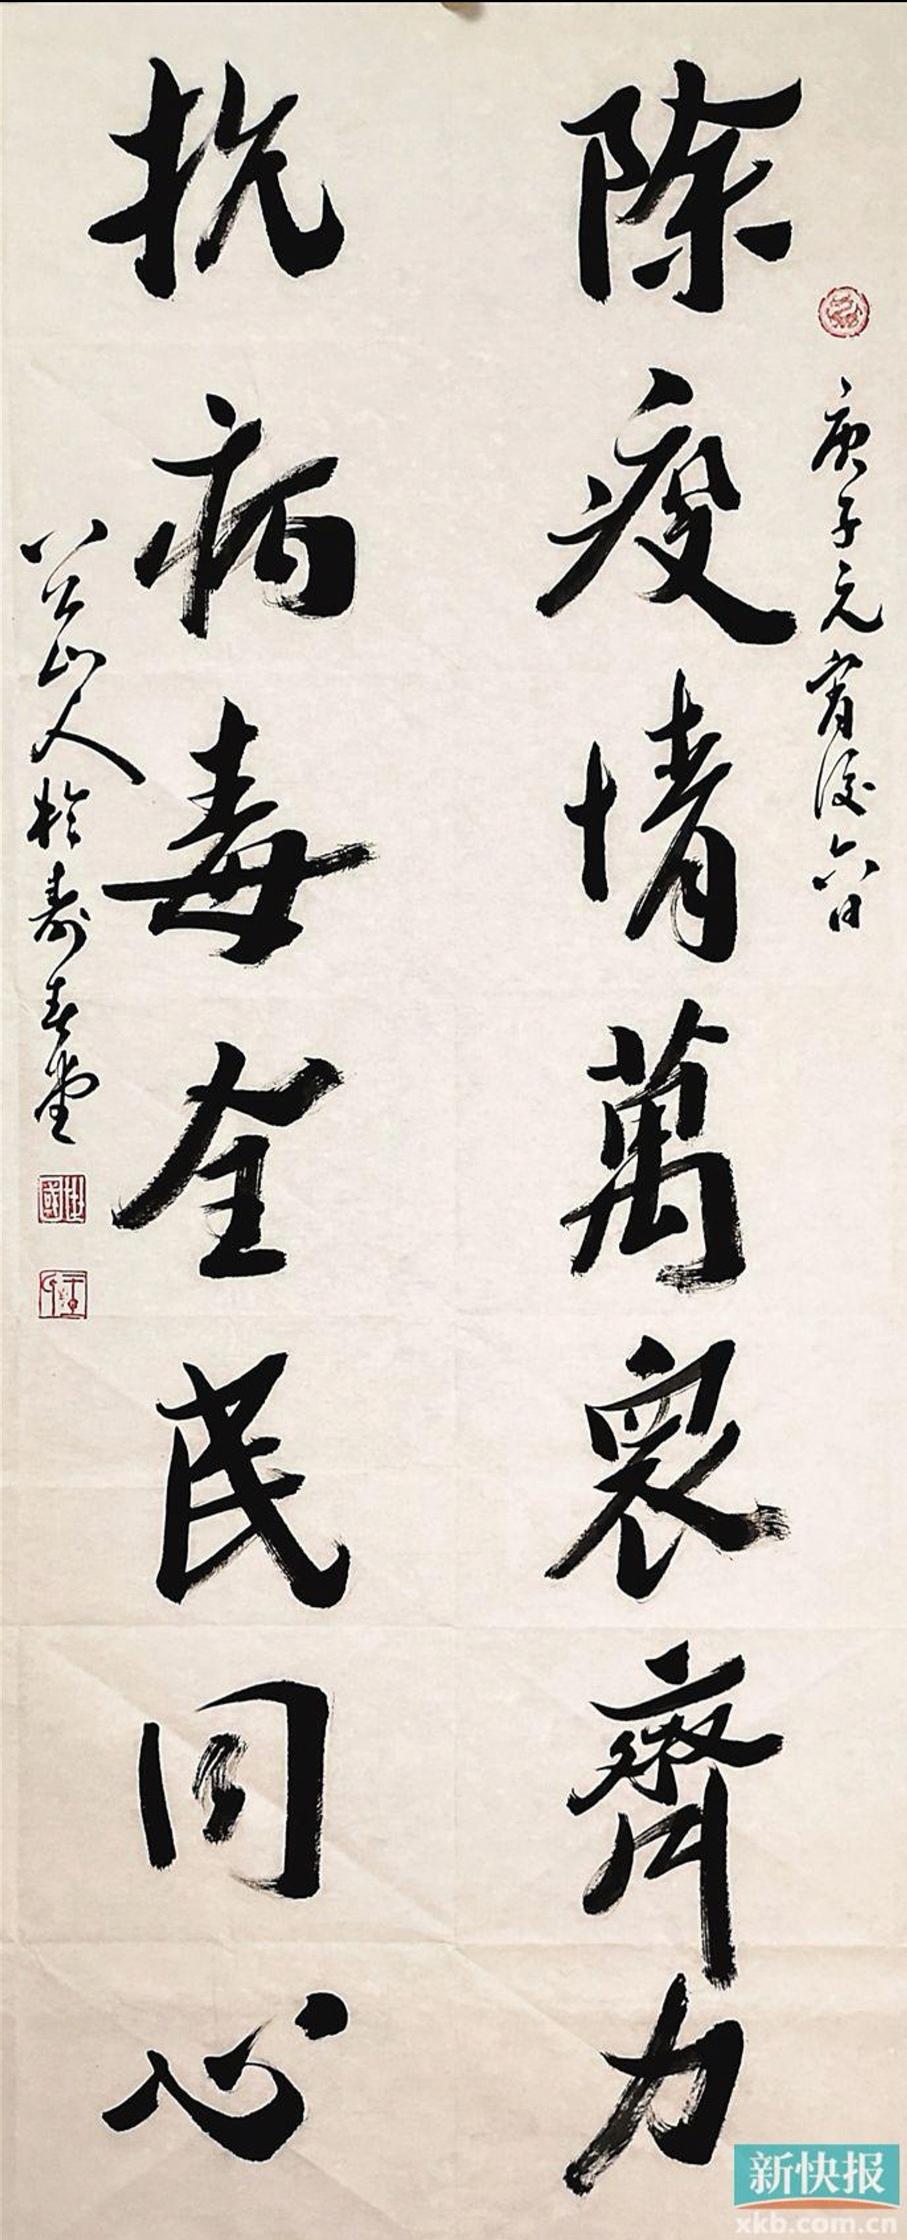 庚子元宵後六日
除疫情萬眾齊力
抗病毒全民同心
八公山人於壽春堂
新快报
xkb.com.cn